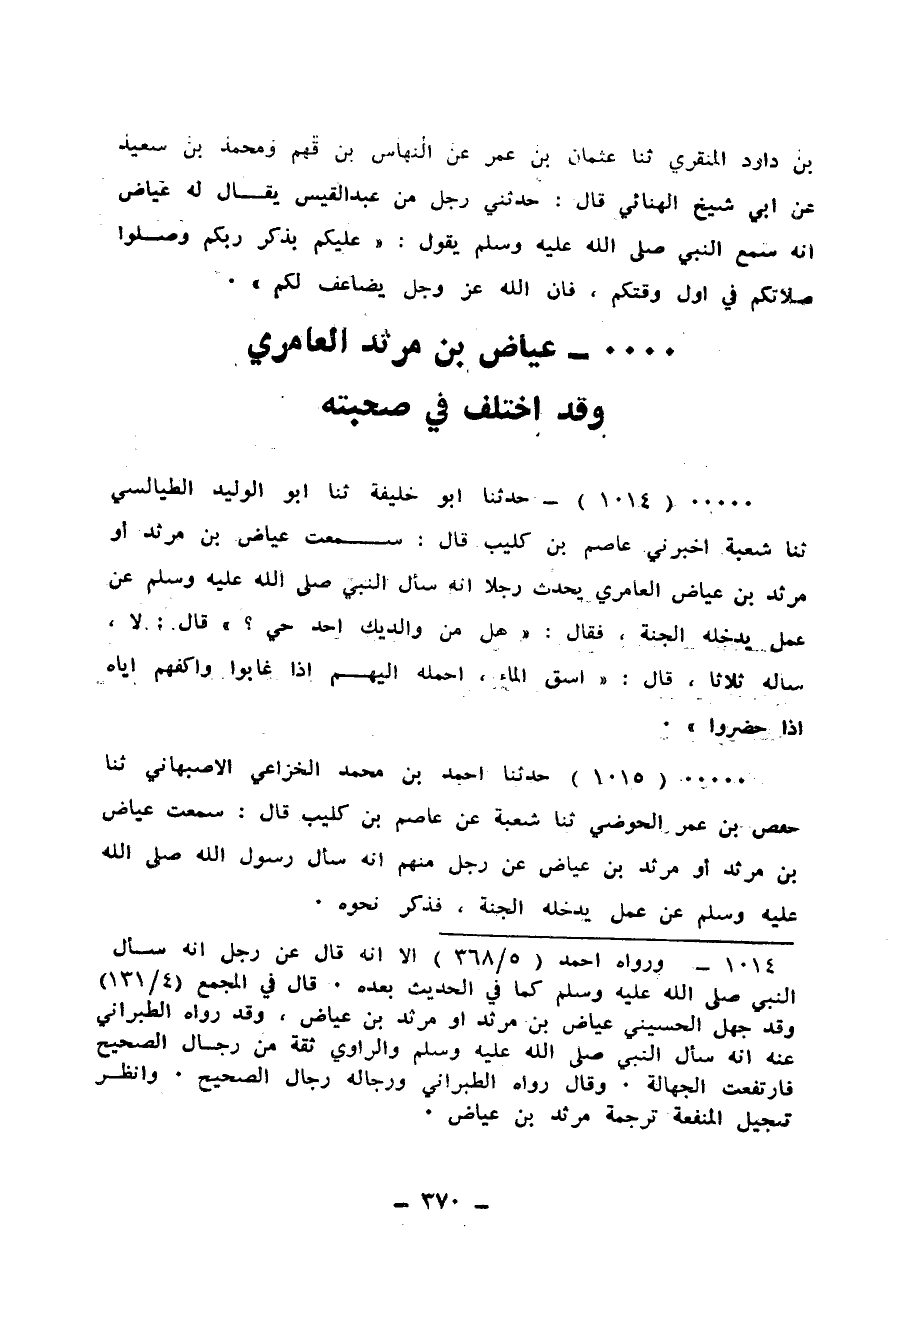 بن داود المنقري ثنا عثمان بن عمر عن النهاس بن قهم ومحمد بن سعيد
عن ابي شيخ الهنائي قال : حدثني رجل من عبدالقيس يقـــال له عياض
انه سمع النبي صلى الله عليه وسلم يقول : « عليكم بذكر ربكم وصـــلوا
صلاتكم في اول وقتكم ، فان الله عز وجل يضاعف لكم » ٠
٠٠٠٠ ــ عياض بن مرثد العامري
وقد اختلف في صحبته
٠٠٠٠٠ ( ١٠١٤ ) ــ حدثنا ابو خليفة ثنا ابو الوليد الطيالسي
ثنا شعبة اخبرني عاصم بن كليب قال : ســـــمعت عياض بن مرثد أو
مرثد بن عياض العامري يحدث رجلا انه سأل النبي صلى الله عليه وسلم عن
عمل يدخله الجنة ، فقال : « هل من والديك احد حي ؟ » قال : لا ،
ساله ثلاثا ، قال : « اسق الماء ، احمله اليهـــم اذا غابوا واكفهم اياه
اذا حضروا » ٠
٠٠٠٠٠ ( ١٠١٥ ) حدثنا احمد بن محمد الخزاعي الاصبهاني ثنا
حفص بن عمر الحوضي ثنا شعبة عن عاصم بن كليب قال : سمعت عياض
بن مرثد أو مرثد بن عياض عن رجل منهم انه سأل رسول الله صلى الله
عليه وسلم عن عمل يدخله الجنة ، فذكر نحوه ٠
١٠١٤ ــ ورواه احمد ( ٣٦٨/٥ ) الا انه قال عن رجل انه ســأل
النبي صلى الله عليه وسلم كما في الحديث بعده ٠ قال في المجمع (١٣١/٤)
وقد جهل الحسيني عياض بن مرثد او مرثد بن عياض ، وقد رواه الطبراني
عنه انه سأل النبي صلى الله عليه وسلم والراوي ثقة من رجــال الصحيح
فارتفعت الجهالة ٠ وقال رواه الطبراني ورجاله رجال الصحيح ٠ وانظــر
تعجيل المنفعة ترجمة مرثد بن عياض ٠
ــ ٣٧٠ ــ